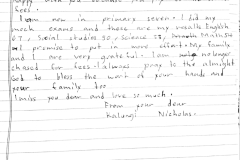 happy with you because
fees.
I am now in primary seven. I did my
mock exams and these are my results English
67, Social studies 50, Science 55,
I promise to put in more effort. My family
and I are very grateful. I am no longer
chased for fees. I always pray to the almight
God to bless the work of your hands and
your family too
I miss you dear and love so much.
From your dear
Kalungi Nicholas.